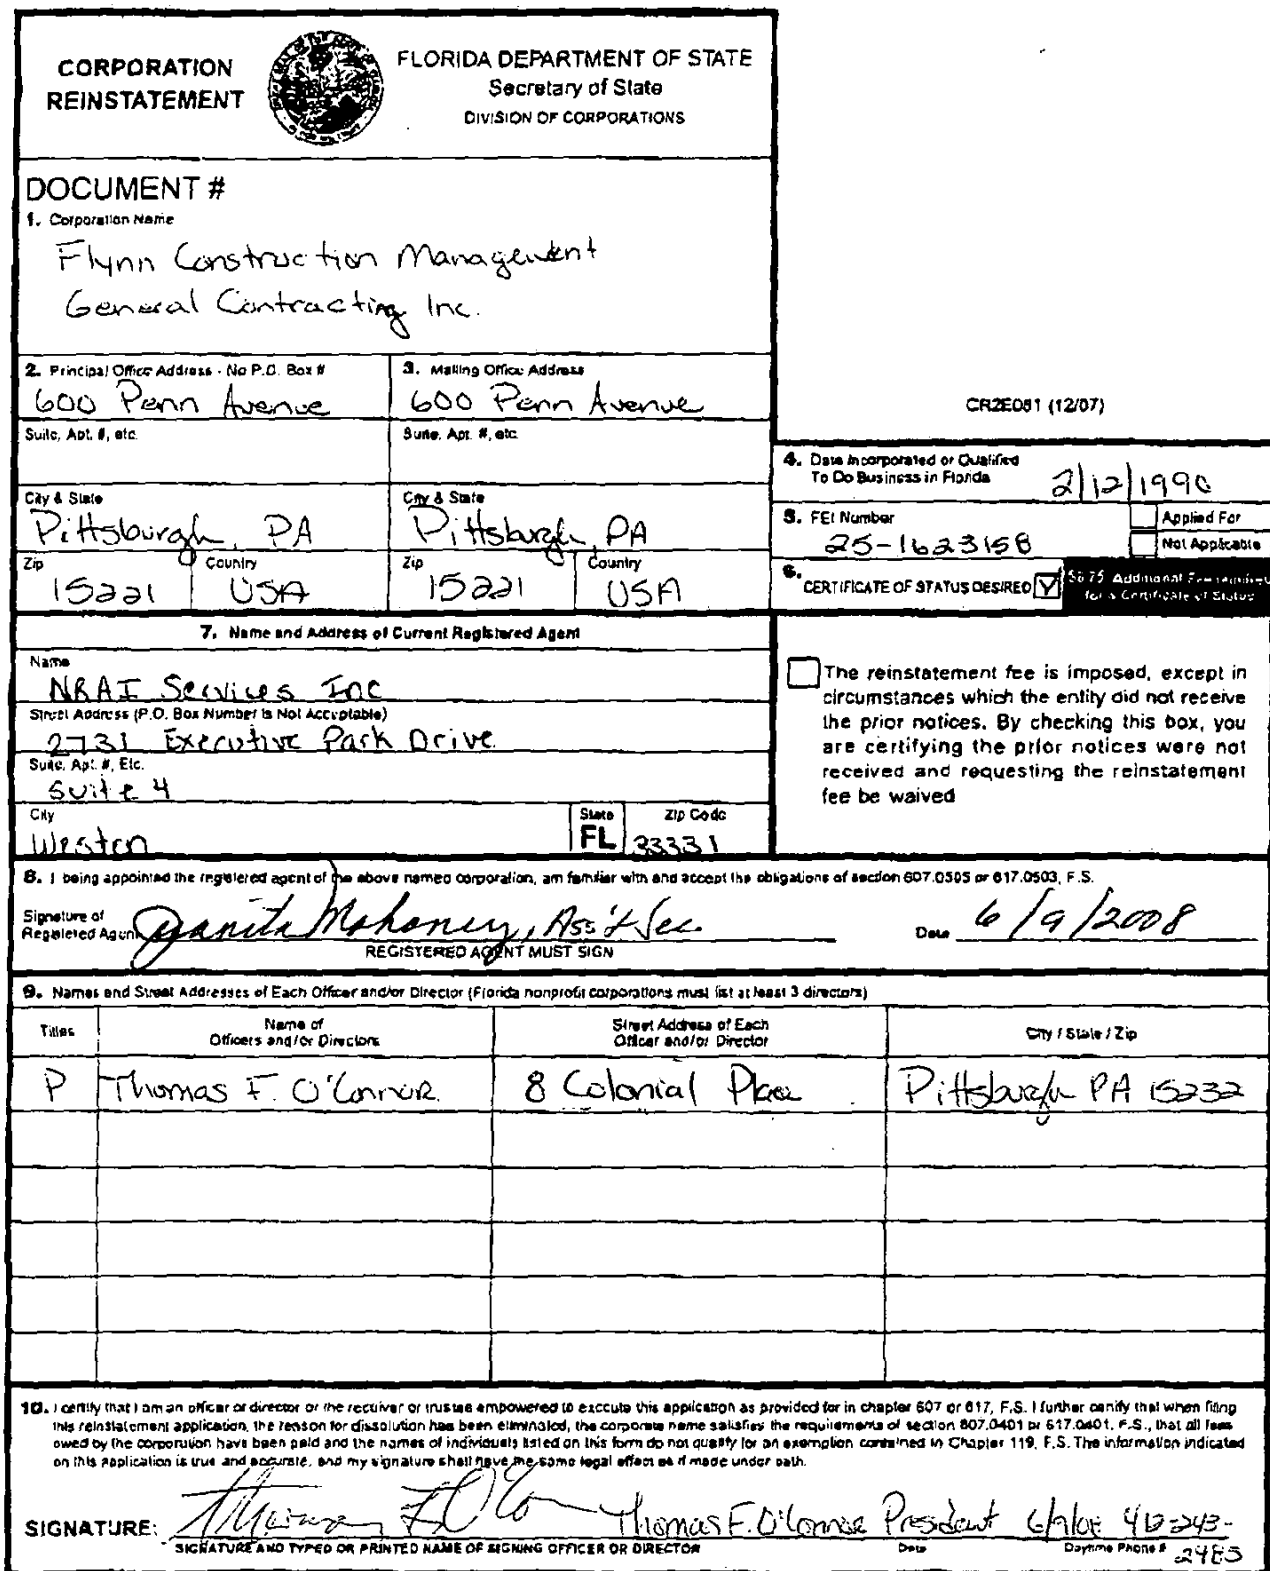 CORPORATION
REINSTATEMENT
FLORIDA DEPARTMENT OF STATE
Secretary of State
DIVISION OF CORPORATIONS
DOCUMENT #
1. Corporation Name
Flynn Construction Management
General Contracting Inc.
2. Principal Office Address - No P.O. Box #
3. Mailing Office Address
600 Penn Avenue
600 Penn Avenue
CR2E081 (12/07)
Suite, Apt. #, etc.
Suite, Apt. #, etc.
4. Date Incorporated or Qualified
To Do Business in Florida
2/12/1990
City & State
City & State
Pittsburgh, PA
Pittsburgh, PA
5. FEI Number
25-1623158
Applied For
Not Applicable
Zip
Country
Zip
Country
15221
USA
15221
USA
6. CERTIFICATE OF STATUS DESIRED
$8.75 Additional Fee required
for a Certificate of Status
7. Name and Address of Current Registered Agent
Name
NRAI Services Inc
Street Address (P.O. Box Number is Not Acceptable)
2731 Executive Park Drive
Suite, Apt. #, Etc.
Suite 4
City
State
Zip Code
Weston
FL
33331
The reinstatement fee is imposed, except in
circumstances which the entity did not receive
the prior notices. By checking this box, you
are certifying the prior notices were not
received and requesting the reinstatement
fee be waived
8. I being appointed the registered agent of the above named corporation, am familiar with and accept the obligations of section 607.0505 or 617.0503, F.S.
Signature of
Registered Agent
Mahoney, Ass't Sec
Date 6/9/2008
REGISTERED AGENT MUST SIGN
9. Names and Street Addresses of Each Officer and/or Director (Florida nonprofit corporations must list at least 3 directors)
Titles
Name of
Officers and/or Directors
Street Address of Each
Officer and/or Director
City / State / Zip
P
Thomas F. O'Connor
8 Colonial Place
Pittsburgh PA 15232
10. I certify that I am an officer or director or the receiver or trustee empowered to execute this application as provided for in chapter 607 or 617, F.S. I further certify that when filing
this reinstatement application, the reason for dissolution has been eliminated, the corporate name satisfies the requirements of section 607.0401 or 617.0401, F.S., that all fees
owed by the corporation have been paid and the names of individuals listed on this form do not qualify for an exemption contained in Chapter 119, F.S. The information indicated
on this application is true and accurate, and my signature shall have the same legal effect as if made under oath.
SIGNATURE:
Thomas F. O'Connor President 6/9/08 412-243-
2485
SIGNATURE AND TYPED OR PRINTED NAME OF SIGNING OFFICER OR DIRECTOR
Date
Daytime Phone #